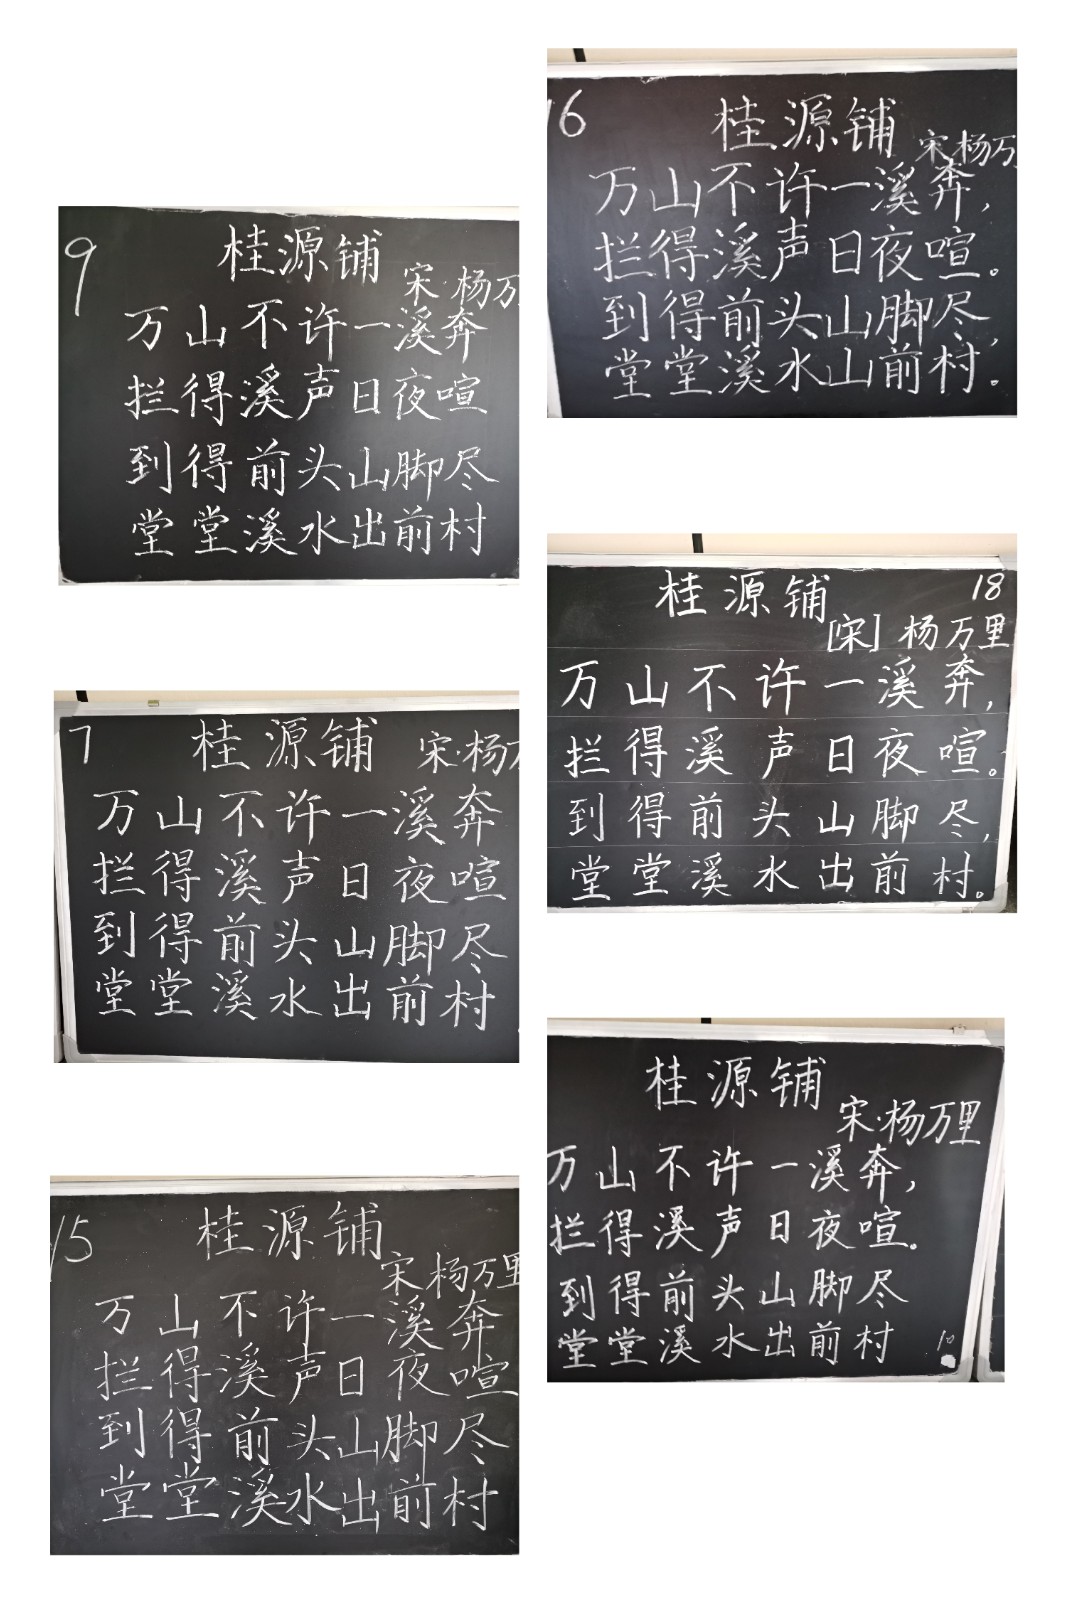 9
桂源铺
宋·杨万
万山不许一溪奔
拦得溪声日夜喧
到得前头山脚尽
堂堂溪水出前村
7
桂源铺
宋·杨万
万山不许一溪奔
拦得溪声日夜喧
到得前头山脚尽
堂堂溪水出前村
15
桂源铺
宋·杨万里
万山不许一溪奔
拦得溪声日夜喧
到得前头山脚尽
堂堂溪水出前村
16
桂源铺
宋·杨万
万山不许一溪奔，
拦得溪声日夜喧。
到得前头山脚尽，
堂堂溪水山前村。
桂源铺
18
[宋] 杨万里
万山不许一溪奔，
拦得溪声日夜喧。
到得前头山脚尽，
堂堂溪水出前村。
桂源铺
宋·杨万里
万山不许一溪奔，
拦得溪声日夜喧。
到得前头山脚尽
堂堂溪水出前村
10